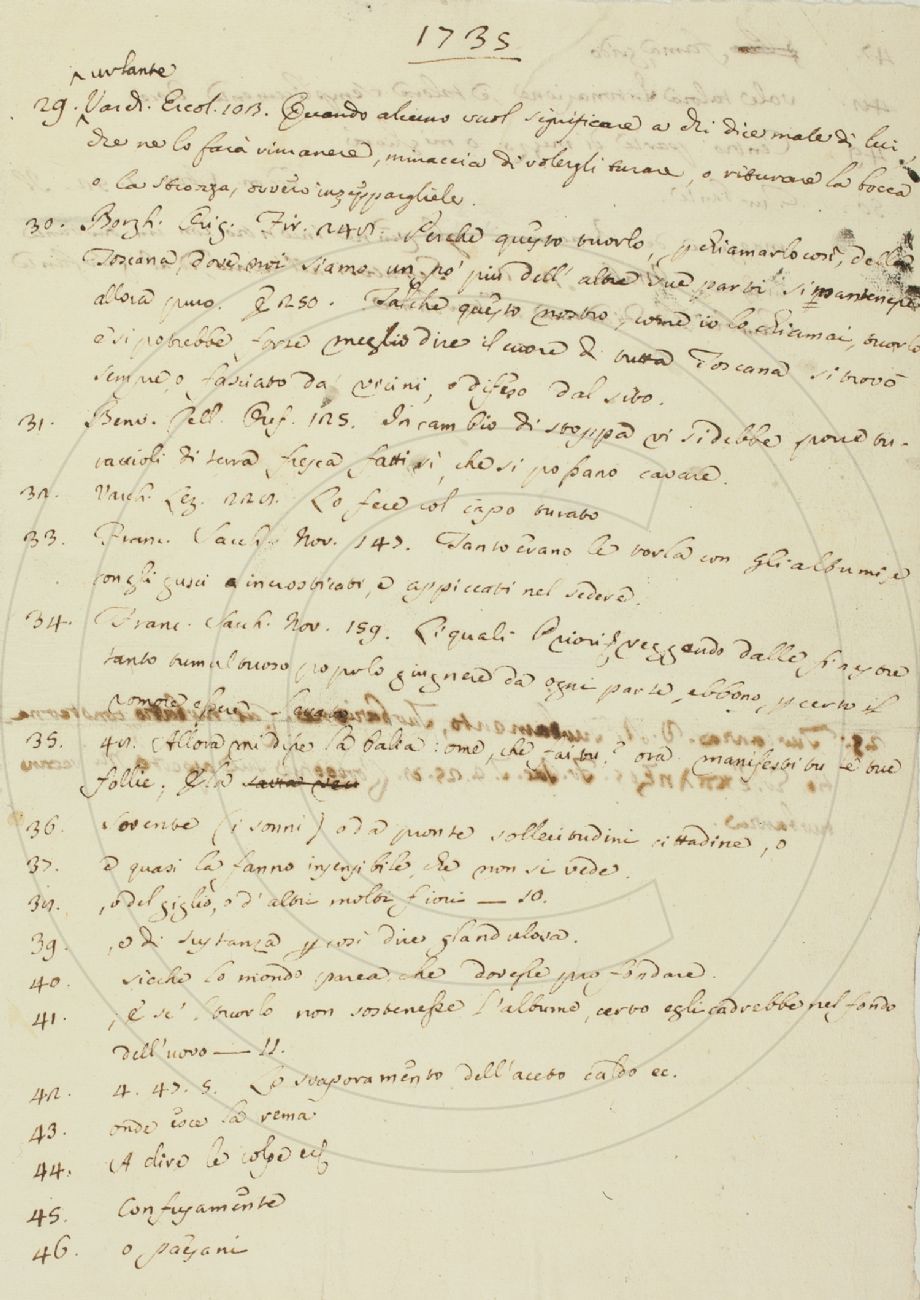 1735
urlante
29. Varch. Ercol. 103. Quando alcuno vuol significare a chi dice male di lui,
che ne lo farà rimanere, minaccia di volergli turare, o riturare la bocca
o la strozza, ovvero inzeppargliele.
30. Borgh. Orig. Fir. 248. Perchè questo tuorlo, p chiamarlo così, della
Toscana, dove noi siamo un po' più dell' altre due parti si mantenesse
allora puro. E 250. Talchè questo nostro, come io lo chiamai, tuorlo
e si potrebbe forse meglio dire il cuore di tutta Toscana si trovò
sempre, o fasciato da' vicini, o difeso dal sito.
31. Benv. Cell. Oref. 125. In cambio di stoppa vi si debbe porre tu-
raccioli di terra fresca fatti sì, che si possano cavare.
32. Varch. Lez. 228. Lo fece col capo turato
33. Franc. Sacch. Nov. 147. Tanto erano le torla con gli albumi, e
con gli gusci incrosticati, e appiccati nel sedere.
34. Franc. Sacch. Nov. 159. Li quali Priori veggendo dalle finestre
tanto tumultuoso popolo giugnere da ogni parte, ebbono, p certo il
romore essere
35. 48. Allora mi disse la balia: omè, che fai tu? ora manifesti tu le tue
follie; E la
36. Sovente (i sonni) o da pronte sollecitudini cittadine, o
37. e quasi la fanno insensibile, che non si vede.
38. , o del giglio, o d' altri molti fiori — 10.
39. , o di sustanza p così dire glandulosa.
40. sicchè lo mondo parea, che dovesse profondare.
41. ; E se' l tuorlo non sostenesse l'albume, certo egli cadrebbe nel fondo
dell' uovo — 11.
42. 4. 47. 5. Lo svaporamento dell' aceto caldo ec.
43. onde esce la rema
44. A dire le colpe
45. Confusamente
46. o paesani